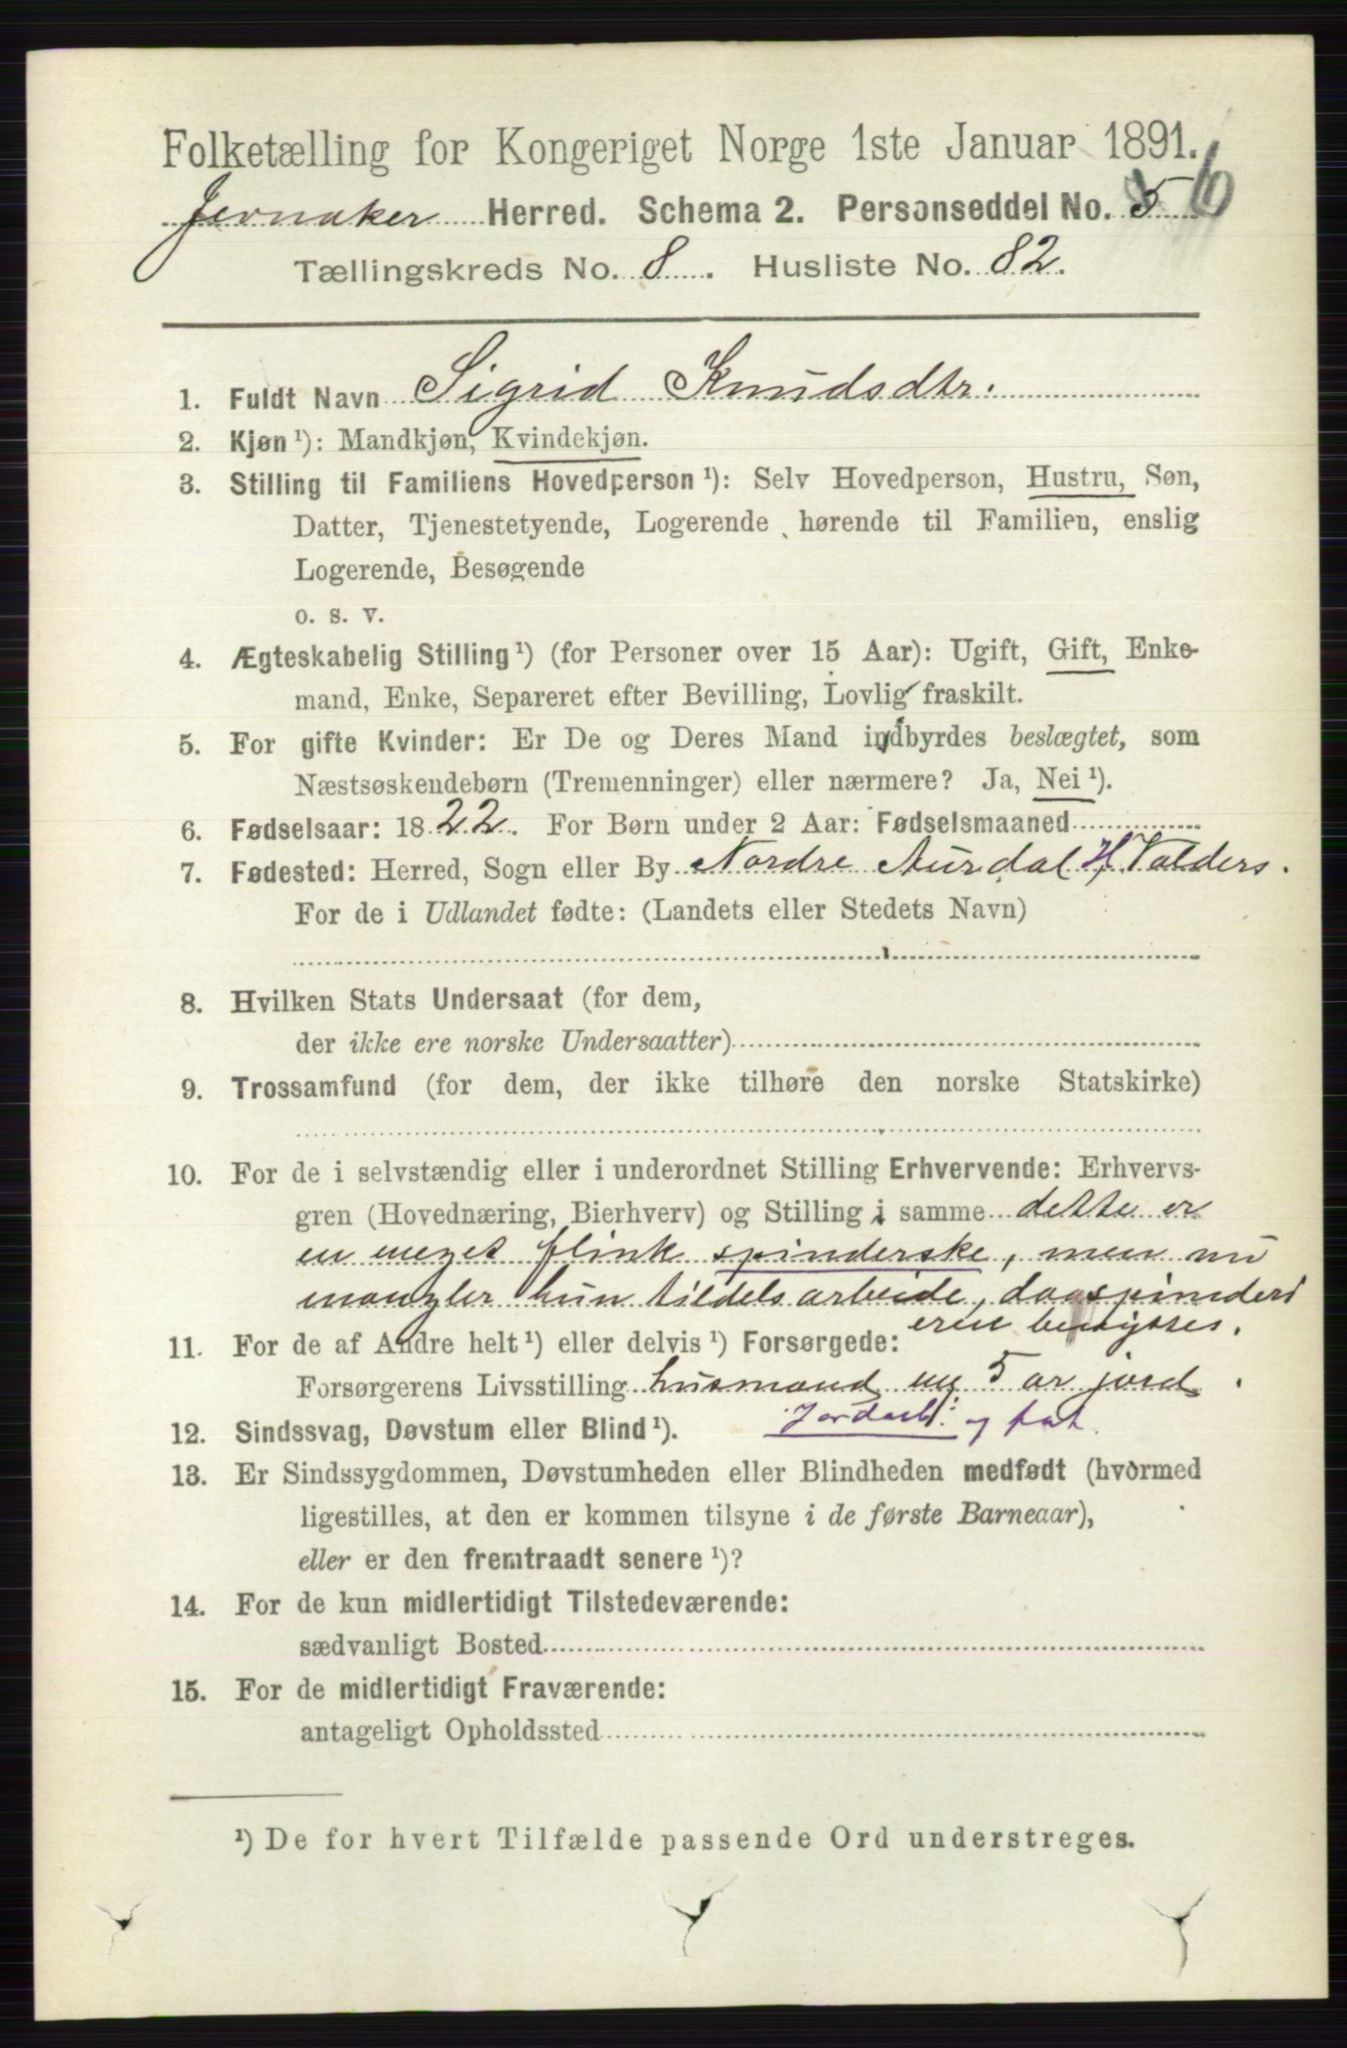 Folketælling for Kongeriget Norge 1ste Januar 1891.
Jevnaker Herred. Schema 2. Personseddel No. 5 6
Tællingskreds No. 8. Husliste No. 82.
1. Fuldt Navn Sigrid Knudsdtr.
2. Kjøn ¹): Mandkjøn, Kvindekjøn.
3. Stilling til Familiens Hovedperson ¹): Selv Hovedperson, Hustru, Søn,
Datter, Tjenestetyende, Logerende hørende til Familien, enslig
Logerende, Besøgende
o. s. v.
4. Ægteskabelig Stilling ¹) (for Personer over 15 Aar): Ugift, Gift, Enke-
mand, Enke, Separeret efter Bevilling, Lovlig fraskilt.
5. For gifte Kvinder: Er De og Deres Mand indbyrdes beslægtet, som
Næstsøskendebørn (Tremenninger) eller nærmere? Ja, Nei ¹).
6. Fødselsaar: 1822. For Børn under 2 Aar: Fødselsmaaned
7. Fødested: Herred, Sogn eller By Nordre Aurdal H Valders.
For de i Udlandet fødte: (Landets eller Stedets Navn)
8. Hvilken Stats Undersaat (for dem,
der ikke ere norske Undersaatter)
9. Trossamfund (for dem, der ikke tilhøre den norske Statskirke)
10. For de i selvstændig eller i underordnet Stilling Erhvervende: Erhvervs-
gren (Hovednæring, Bierhverv) og Stilling i samme dette er
en meget flink spinderske, men nu
mangler hun tildels arbeide,
11. For de af Andre helt ¹) eller delvis ¹) Forsørgede:
Forsørgerens Livsstilling husmand 5 ar jord.
Jordarb: og fat.
12. Sindssvag, Døvstum eller Blind ¹).
13. Er Sindssygdommen, Døvstumheden eller Blindheden medfødt (hvormed
ligestilles, at den er kommen tilsyne i de første Barneaar),
eller er den fremtraadt senere ¹)?
14. For de kun midlertidigt Tilstedeværende:
sædvanligt Bosted
15. For de midlertidigt Fraværende:
antageligt Opholdssted
¹) De for hvert Tilfælde passende Ord understreges.